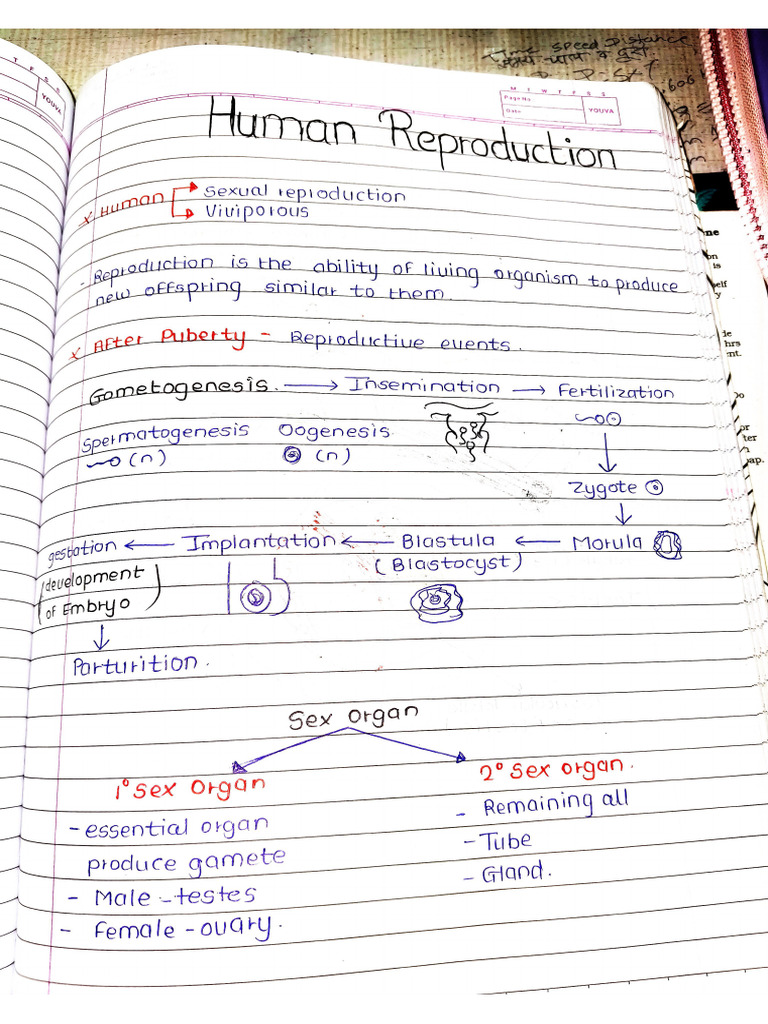 Time Speed Distance
M T W T F S S
Page No
Date
YOUVA
T F S S
YOUVA
Human Reproduction
x Human → Sexual reproduction
→ Viviporous
- Reproduction is the ability of living organism to produce
new offspring similar to them.
x After Puberty - Reproductive events.
Gametogenesis. → Insemination → Fertilization
Spermatogenesis Oogenesis
(n) (n)
↓
Zygote
↓
gestation ← Implantation ← Blastula ← Morula
(Blastocyst)
(development
of Embryo)
↓
Parturition.
Sex organ
1° Sex Organ 2° Sex organ.
- essential organ - Remaining all
produce gamete - Tube
- Male - testes - Gland.
- Female - ovary.